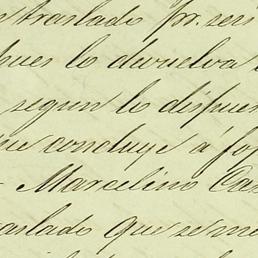 traslado pr. seis
pues lo devuelva
segun lo dispues
ue concluye á foj
Marcelino Cas
raslado que se me